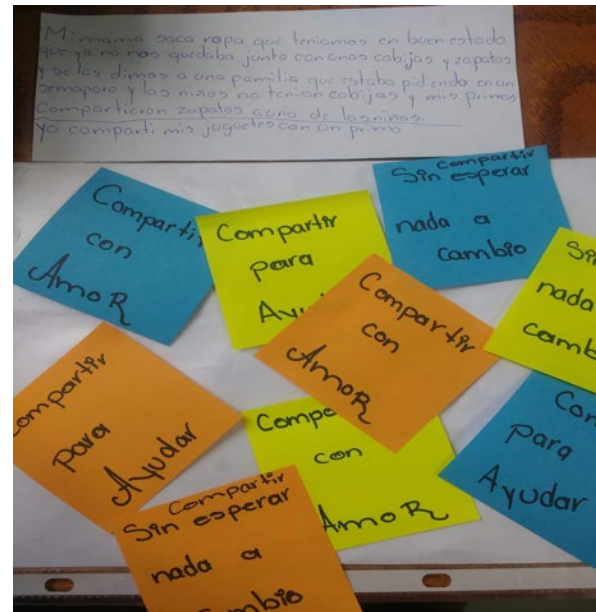 Mi mamá saca ropa que teniamos en buen estado
que ya no nos quedaba junto con unas cobijas y zapatos
y se las dimos a una familia que estaba pidiendo en un
semaforo y los niños no tenian cobijas y mis primas
Compartieron zapatos a una de las niñas.
Yo comparti mis juguetes con un primo
Compartir
con
AmoR
Compartir
para
Ayu
Compartir
Sin esperar
nada a
cambio
Sin
nada
camb
Compartir
con
AmoR
ompartir
para
Ayudar
Compa
con
AmoR
Com
para
Ayudar
Compartir
Sin esperar
nada a
mbio